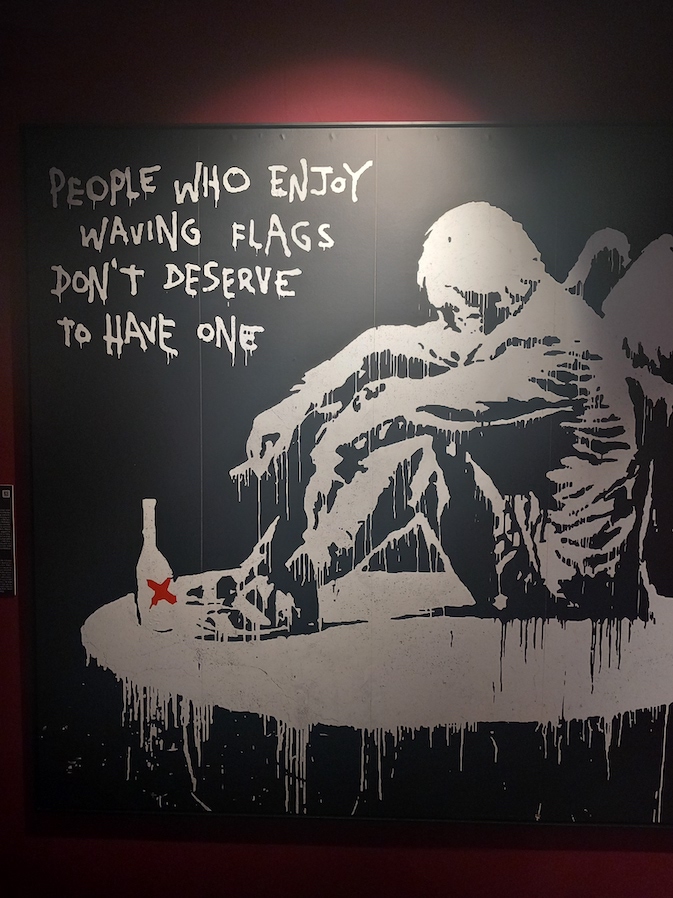 PEOPLE WHO ENJOY
WAVING FLAGS
DON'T DESERVE
TO HAVE ONE